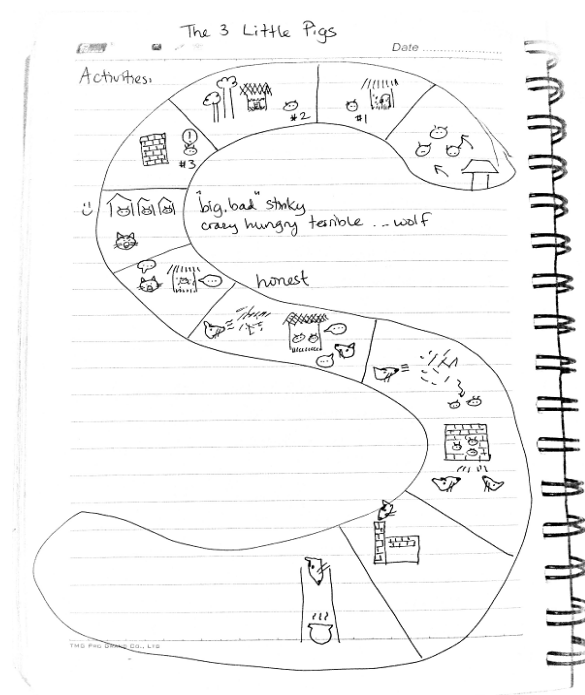 The 3 Little Pigs
Date
Activities:
#2
#1
#3
"big.bad" stinky
crazy hungry terrible ... wolf
honest